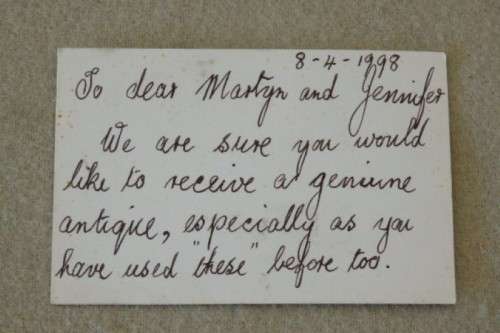 8-4-1998
To dear Martyn and Jennifer
We are sure you would
like to receive a geniune
antique, especially as you
have used "these" before too.